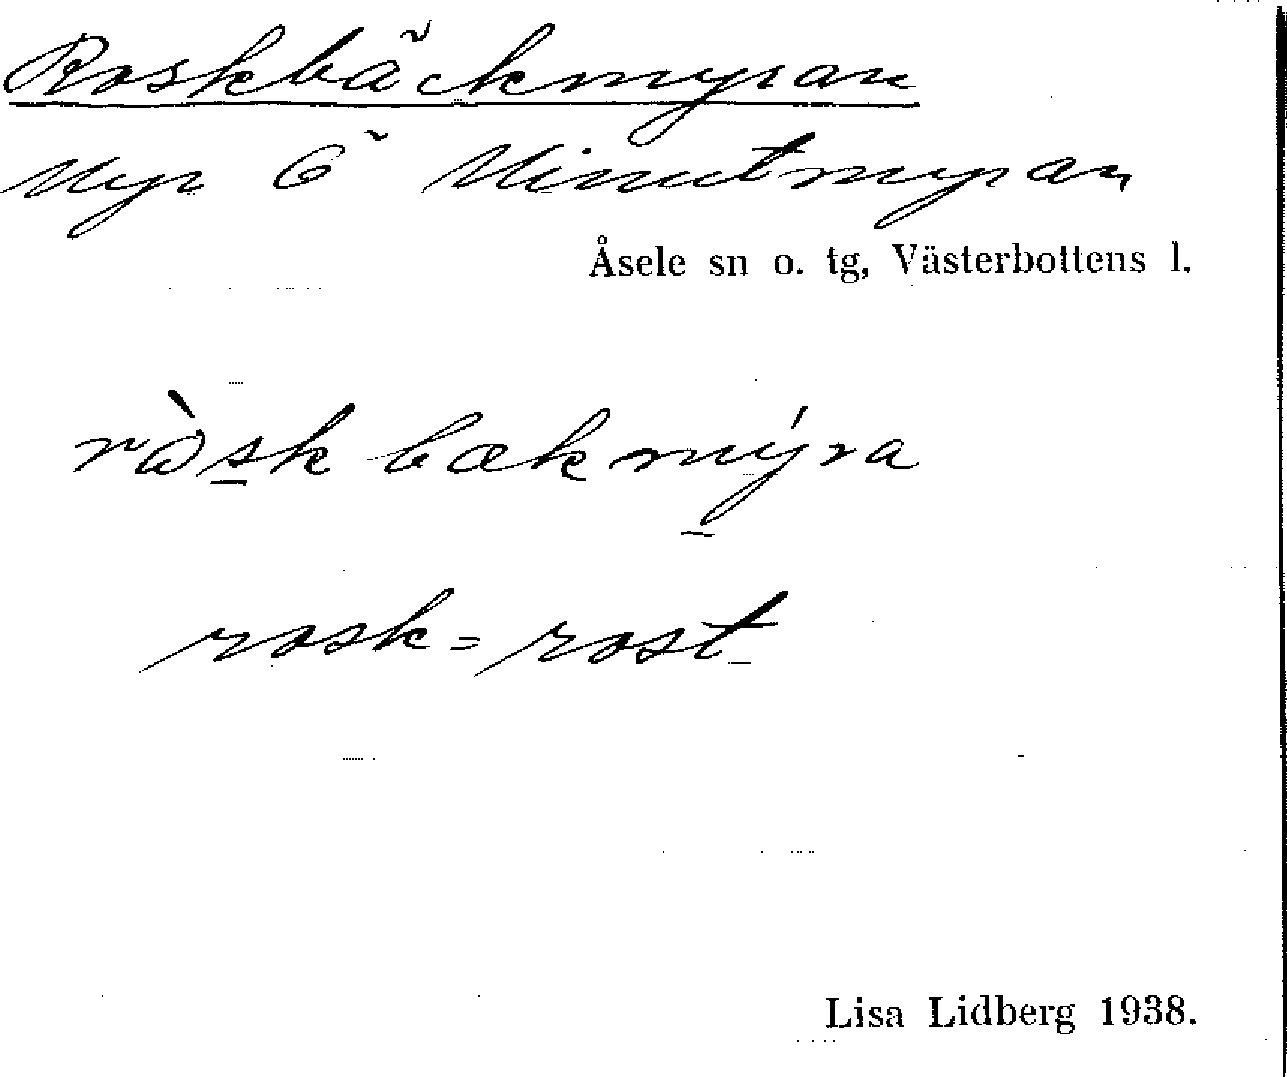 Roskbäckmyran
Myr Ö Minutmyran
Åsele sn o. tg, Västerbottens l.
ròsk bækmýra
rosk = rost
Lisa Lidberg 1938.